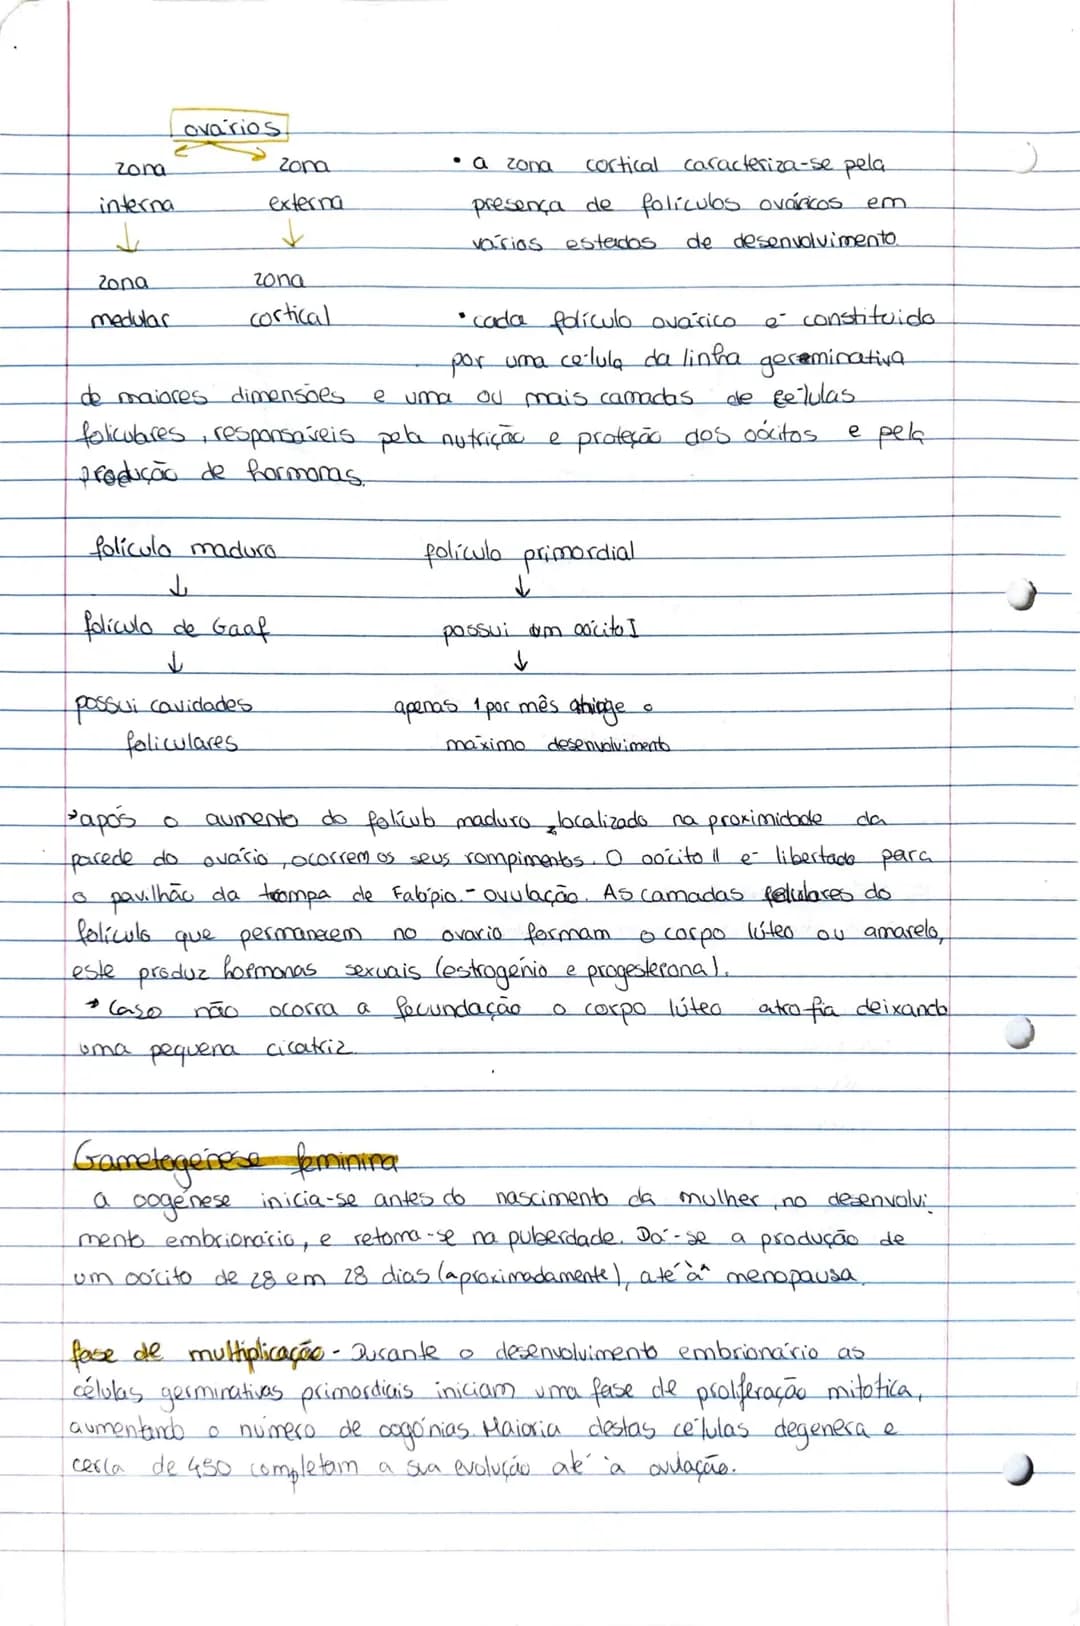 ovários
zona zona
interna externa
zona zona
medular cortical
• a zona cortical caracteriza-se pela
presença de folículos ováricos em
vários estados de desenvolvimento.
• cada folículo ovárico é constituido
por uma célula da linha gereminativa
de maiores dimensões e uma ou mais camadas de células
foliculares, responsáveis pela nutrição e proteção dos oócitos e pela
produção de hormonas.
folículo maduro folículo primordial
↓ ↓
folículo de Gaaf possui um oócito I
↓ ↓
possui cavidades apenas 1 por mês atinge o
foliculares máximo desenvolvimento
→ após o aumento do folículo maduro, localizado na proximidade da
parede do ovário, ocorrem os seus rompimentos. O oócito II é libertado para
o pavilhão da trompa de Falópio. - ovulação. As camadas celulares do
folículo que permanecem no ovario formam o corpo lúteo ou amarelo,
este produz hormonas sexuais (estrogénio e progesterona).
→ Caso não ocorra a fecundação o corpo lúteo atrofia deixando
uma pequena cicatriz.
Gametogénese feminina
a oogénese inicia-se antes do nascimento da mulher, no desenvolvi-
mento embrionário, e retoma-se na puberdade. Dá-se a produção de
um oócito de 28 em 28 dias (aproximadamente), até à menopausa.
fase de multiplicação - Durante o desenvolvimento embrionário as
células germinativas primordiais iniciam uma fase de proliferação mitótica,
aumentando o número de oogónias. Maioria destas células degenera e
cerca de 450 completam a sua evolução até à ovulação.